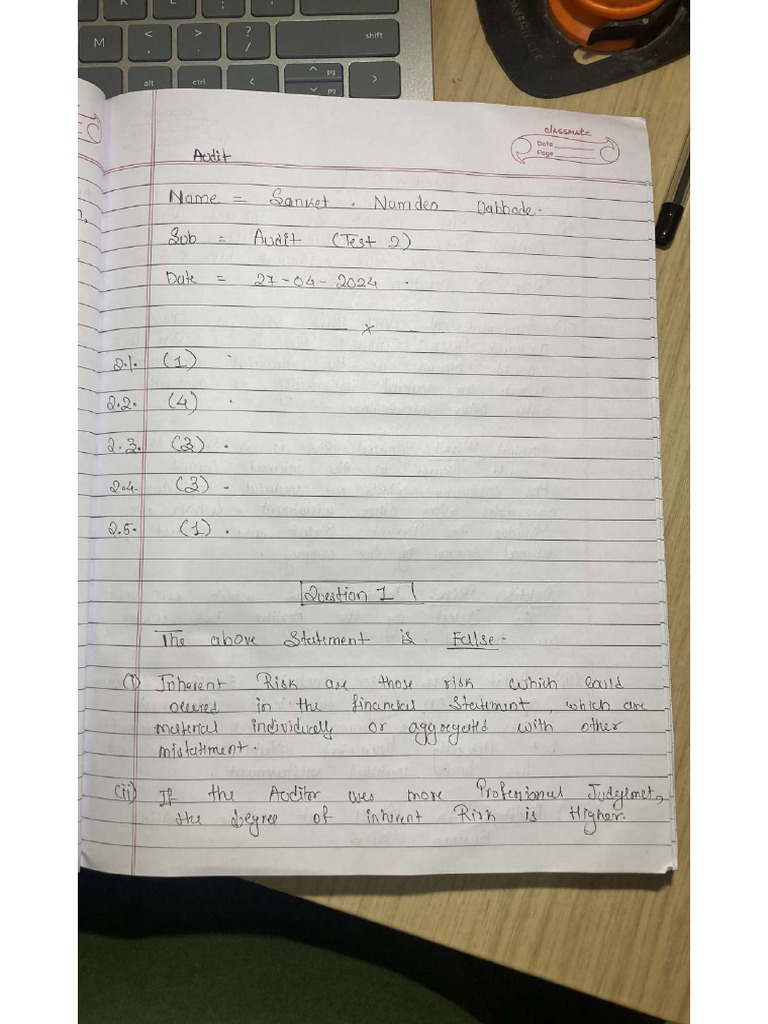 K
L
M
<
,
>
.
?
/
shift
alt
ctrl
<
^ pg
pg
>
classmate
Date
Page
Audit
Name = Sanket . Namdeo Dabhade.
Sub = Audit (Test 2)
Date = 27-04-2024 .
x
2.1. (1) .
2.2. (4) .
2.3. (3) .
2.4. (3) -
2.5. (1) .
Question 1
The above Statement is False.
(i) Inherent Risk are those risk which could
occured in the financial Statement, which are
material individually or aggregated with other
mistatement.
(ii) If the Auditor uses more Professional Judgement,
the degree of inherent Risk is Higher.